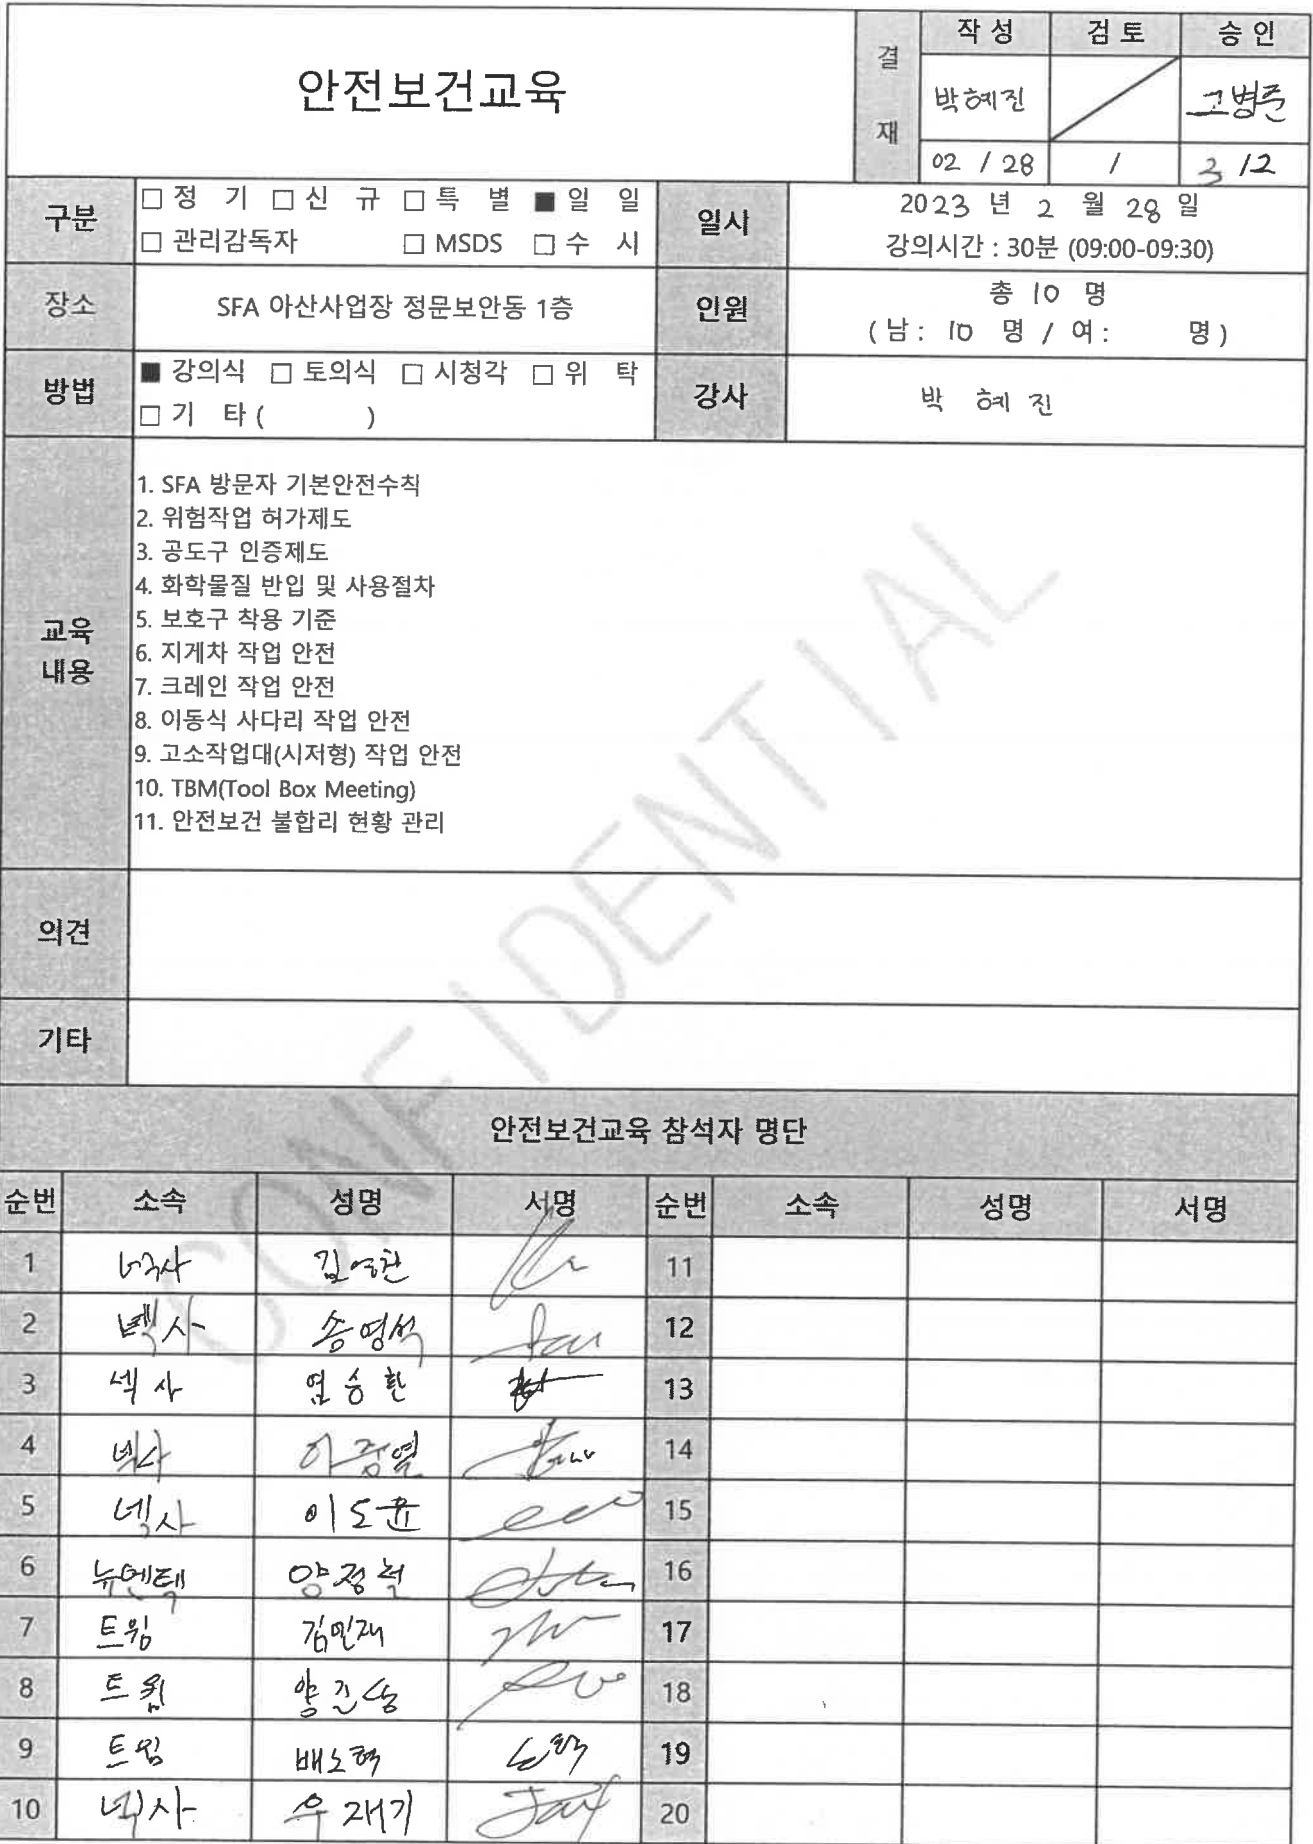 안전보건교육
결재
작 성 검 토 승 인
박혜진 고병준
02 / 28 / 3 / 2
구분
□ 정 기 □ 신 규 □ 특 별 ■ 일 일
□ 관리감독자 □ MSDS □ 수 시
일시
2023 년 2 월 28 일
강의시간 : 30분 (09:00-09:30)
장소
SFA 아산사업장 정문보안동 1층
인원
총 10 명
( 남 : 10 명 / 여 : 명 )
방법
■ 강의식 □ 토의식 □ 시청각 □ 위 탁
□ 기 타 ( )
강사
박 혜 진
교육
내용
1. SFA 방문자 기본안전수칙
2. 위험작업 허가제도
3. 공도구 인증제도
4. 화학물질 반입 및 사용절차
5. 보호구 착용 기준
6. 지게차 작업 안전
7. 크레인 작업 안전
8. 이동식 사다리 작업 안전
9. 고소작업대(시저형) 작업 안전
10. TBM(Tool Box Meeting)
11. 안전보건 불합리 현황 관리
의견
기타
CONFIDENTIAL
안전보건교육 참석자 명단
순번 소속 성명 서명 순번 소속 성명 서명
1 넥사 김영찬 11
2 넥사 송영석 12
3 넥사 염승환 13
4 넥사 이중열 14
5 넥사 이도윤 15
6 뉴엔텍 양정혁 16
7 트윔 김민재 17
8 트윔 18
9 트윔 배노혁 19
10 넥사 우재기 20